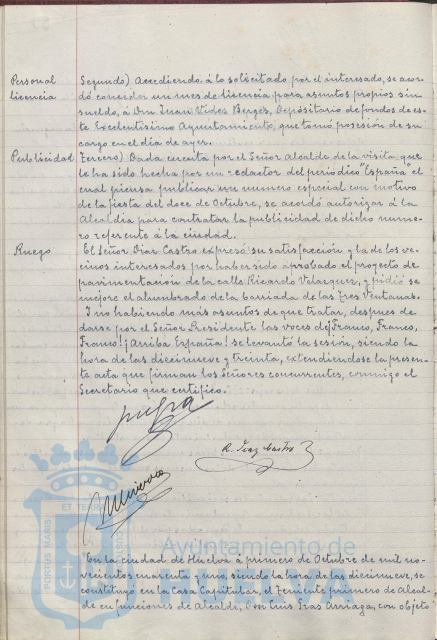 Personal
licencia
Segundo) Accediendo á lo solicitado por el interesado, se acor-
dó conceder un mes de licencia para asuntos propios sin
sueldo, á Don Juan Vides Bergés, Depositario de fondos de es-
te Excelentísimo Ayuntamiento, que tomó posesión de su
cargo en el día de ayer.
Publicidad
Tercero) Dada cuenta por el Señor Alcalde de la visita que
le ha sido hecha por un redactor del periódico "España" el
cual piensa publicar un numero especial con motivo
de la fiesta del doce de Octubre, se acordó autorizar á la
Alcaldia para contratar la publicidad de dicho nume-
ro referente á la ciudad.
Ruego
El Señor Diaz Castro expresó su satisfacción y la de los ve-
cinos interesados por haber sido aprobado el proyecto de
pavimentación de la calle Ricardo Velazquez, y pidió se
mejore el alumbrado de la barriada de las Tres Ventanas.
I no habiendo más asuntos de que tratar, despues de
darse por el Señor Presidente las voces de ¡Franco, Franco,
Franco! ¡Arriba España! se levantó la sesión, siendo la
hora de las diecinueve y treinta, extendiendose la presen-
te acta que firman los Señores concurrentes, conmigo el
Secretario que certifico.
R. Diaz Castro
ET TERRAE
PORTUS MARIS
CUSTODIA
Ayuntamiento de
En la ciudad de Huelva á primero de Octubre de mil no-
vecientos cuarenta y uno, siendo la hora de las diecinueve, se
constituyó en la Casa Capitular, el Teniente primero de Alcal-
de en funciones de Alcalde, Don Luis Iras Arriaga, con objeto